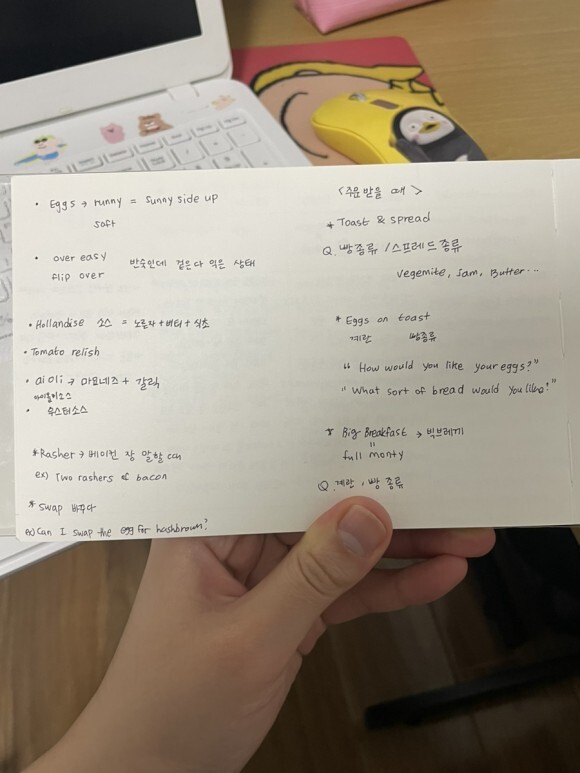 • Eggs → runny = sunny side up
soft
• over easy 반숙인데 겉은 다 익은 상태
flip over
• Hollandise 소스 = 노른자+버터+식초
• Tomato relish
• aioli → 마요네즈 + 갈릭
아이올리소스
• 우스터소스
* Rasher → 베이컨 장 말할 때
ex) Two rashers of bacon
* swap 바꾸다
ex) Can I swap the egg for hashbrown?
<주문 받을 때>
* Toast & spread
Q. 빵종류 / 스프레드 종류
vegemite, Jam, Butter...
* Eggs on toast
계란 빵종류
"How would you like your eggs?"
"What sort of bread would you like?"
* Big Breakfast → 빅브레끼
=
full monty
Q. 계란, 빵 종류